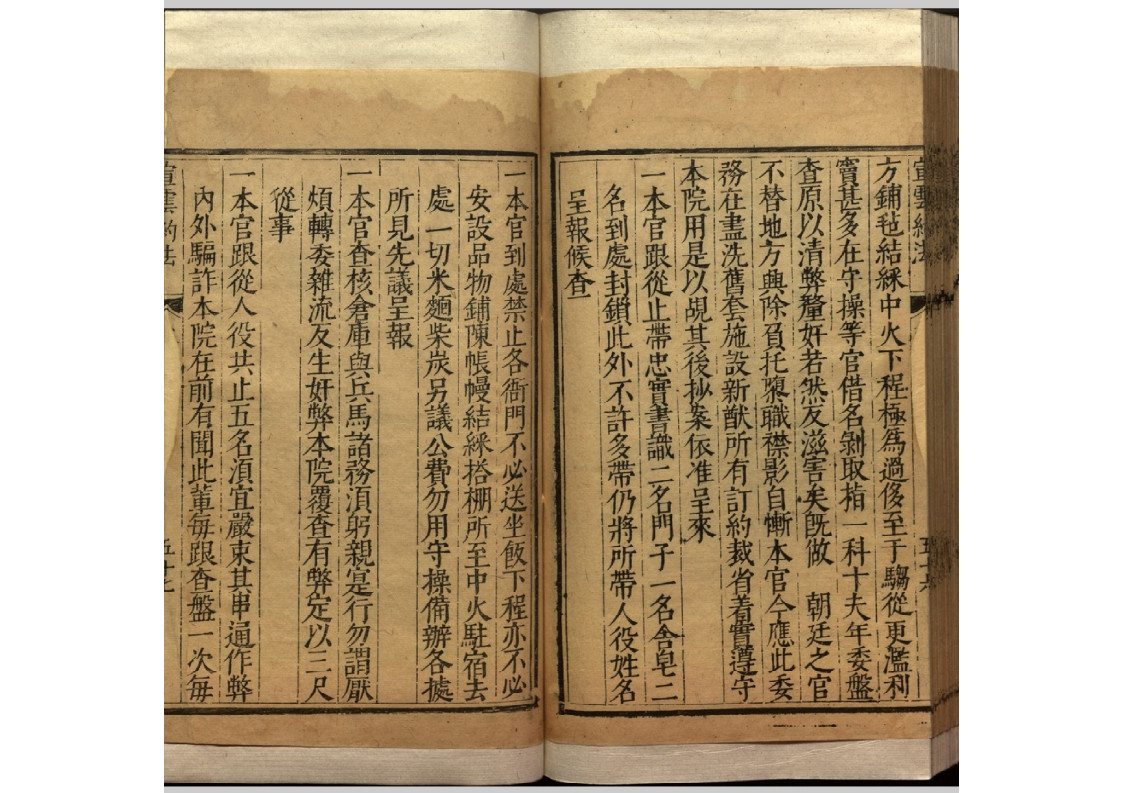 宣雲約法
方鋪毡結綵中火下程極爲過侈至于騶從更濫利
竇甚多在守操等官借名剝取指一科十夫年委盤
査原以清弊釐奸若然反滋害矣旣做　朝廷之官
不替地方興除負托隳職襟影自慚本官今應此委
務在盡洗舊套施設新猷所有訂約裁省着實遵守
本院用是以覘其後抄案依准呈來
一本官跟從止帶忠實書識二名門子一名舎皂二
名到處封鎖此外不許多帶仍將所帶人役姓名
呈報候査
一本官到處禁止各衙門不必送坐飯下程亦不必
安設品物鋪陳帳幔結綵搭棚所至中火駐宿去
處一切米麵柴炭另議公費勿用守操備辦各據
所見先議呈報
一本官査核倉庫與兵馬諸務湏躬親寔行勿謂厭
煩轉委雜流反生奸弊本院覆査有弊定以三尺
從事
一本官跟從人役共止五名湏宜嚴束其串通作弊
內外騙詐本院在前有聞此輩每跟査盤一次每
宣雲約法